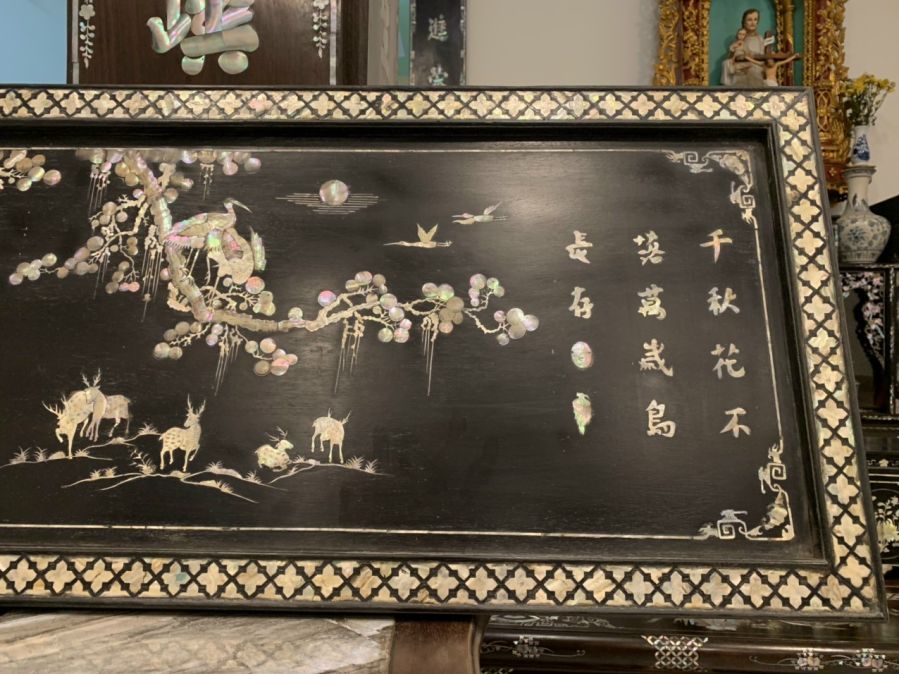 千秋花不
落萬歲鳥
長存